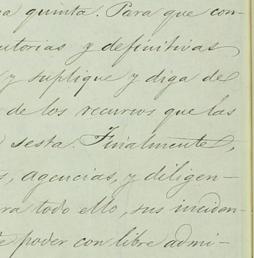 a quinta. Para que con-
utorias y definitivas
y suplique y diga de
de los recursos que las
sesta. Finalmente,
s, agencias, y diligen-
ra todo ello, sus inciden-
e poder con libre admi-